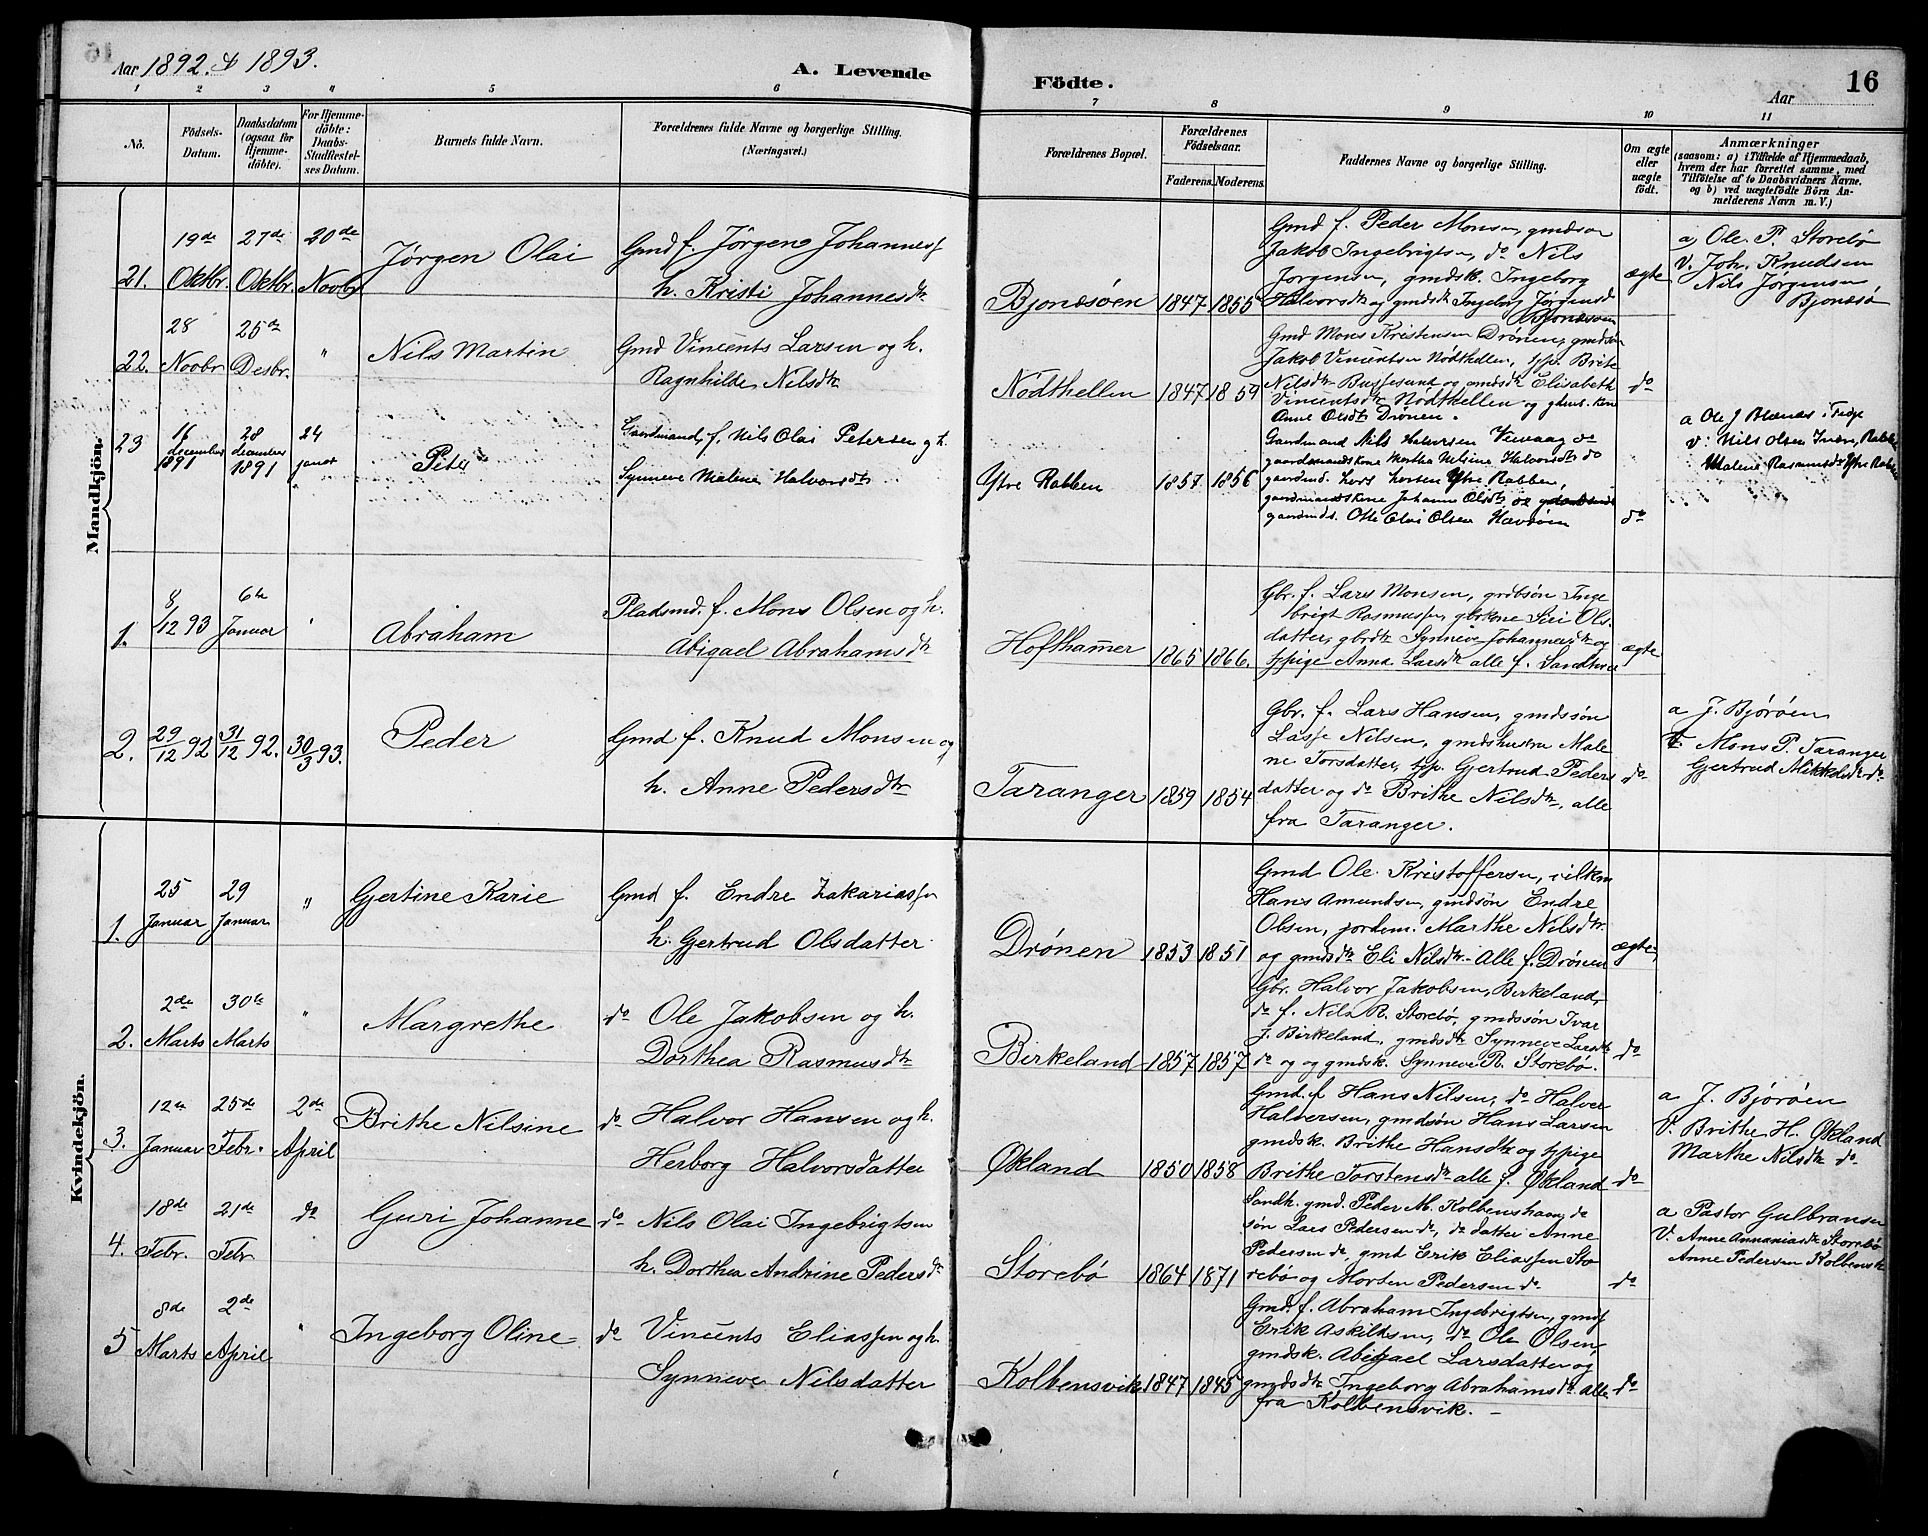 Aar 1892 & 1893.
A. Levende
Födte.
16
Aar
1 2 3 4 5 6 7 8 9 10 11
No.
Födsels-
Datum.
Daabsdatum
(ogsaa for
Hjemme-
døbte).
For Hjemme-
döbte:
Daabs-
Stadfæstel-
ses Datum.
Barnets fulde Navn.
Forældrenes fulde Navne og borgerlige Stilling.
(Næringsvei.)
Forældrenes Bopæl.
Forældrenes
Födselsaar.
Faderens. Moderens.
Faddernes Navne og borgerlige Stilling.
Om ægte
eller
uægte
födt.
Anmærkninger
(saasom: a) i Tilfælde af Hjemmedaab,
hvem der har forrettet samme, med
Tilföielse af to Daabsvidners Navne.
og b) ved uægtefödte Börn An-
melderens Navn m. V.)
Mandkjön.
21.
19de
Oktbr.
27de
Oktbr.
20de
Novbr
Jørgen Olai
Gmd f. Jørgen Johannesf
h. Kristi Johannesdtr
Bjonæsøen
1847 1855
Gmd f. Peder Monsen, gmdsøn
Jakob Ingebrigtsen, do Nils
Jørgensen, gmdsk. Ingeborg
Halvorsdtr og gmdsdtr Ingeborg Jørgensd
Bjonæsøen
ægte
a, Ole P. Storebø
V. Joh. Knudsen
Nils Jørgensen
Bjonæsø
22.
28
Novbr
25de
Desbr.
"
Nils Martin
Gmd Vincents Larsen og h.
Ragnhilde Nilsdtr
Nødthellen
1847 1859
Gmd Mons Kristensen Drønen, gmdsøn
Jakob Vincentsen Nødthellen, tjp. Brite
Nilsdtr Buffesund og gmdsdtr Elisabeth
Vincentsdtr Nødthellen og
Anne Olsdtr Drønen.
do
23
16
december
1891
28
december
1891
24
januar
Peter
Gaardmand, f. Nils Olai Petersen og h.
Synneve Malene Halvorsdtr
Ytre Rabben
1857 1856
Gaardmand Nils Halvorsen Vinvaag do
gaardmandskone Marthe Nilsine Halvorsdtr do
gaardmd. Lars Larsen Ytre Rabben,
gaardmandskone Johanne Olsdtr og
gaardmds. Otte Olai Olsen Hævrøen
do
a Ole J Blænæs i Fitje
v. Nils Olsen Rabben
Malene Rasmusdtr Ytre Rabben
1.
8
/12 93
6te
Januar
"
Abraham
Pladsmd. f. Mons Olsen og h.
Abigael Abrahamsdtr
Hofthamer
1865 1866.
Gbr. f. Lars Monsen, grdbsøn Inge
brigt Rasmussen, gbrkone Siri Ols-
datter, gbrdtr Synneve Johannesdtr og
tjpige Anna Larsdtr alle f.
ægte
2.
29/12 92
31/12 92.
30/3 93.
Peder
Gmd f. Knud Monsen og
h. Anne Pedersdtr
Taranger
1859 1854
Gbr. f. Lars Hansen, gmdssøn
Lasse Nilsen, gmdshustru Male
ne Torsdatter, tjp. Gjertrud Peders
datter og do Brithe Nilsdtr, alle
fra Taranger.
do
a J. Bjørøen
V. Mons P. Taranger
Gjertrud Mikkelsdtr do
Kvindekjön.
1.
25
Januar
29
Januar
"
Gjertine Karie
Gmd f. Endre Zakariassen
h. Gjertrud Olsdatter
Drønen
1853 1851
Gmd Ole Kristoffersen,
Hans Amundsen, gmdsøn Endre
Olsen, jordem. Marthe Nilsdtr
og gmdsdtr Eli Nilsdtr. Alle f. Drønen
ægte
2.
2de
Marts
30te
Marts
"
Margrethe
do Ole Jakobsen og h.
Dorthea Rasmusdtr
Birkeland
1857 1857
Gbr. Halvor Jakobsen, Birkeland,
do f. Nils R. Storebø, gmdssøn Ivar
J. Birkeland, gmdsdtr Synneve Larsdtr
do og og gmdsk. Synneve R. Storebø.
do
3.
12te
Januar
25de
Febr.
2de
April
Brithe Nilsine
do Halvor Hansen og h.
Herborg Halvorsdatter
Økland
1850 1858
Gmd. f Hans Nilsen, do Halvor
Halversen, gmdsøn Hans Larsen
gmdsk. Brithe Hansdtr og tjpige
Brithe Torstensdtr alle f. Økland
do
a J. Bjørøen
V. Brithe H. Økland
Marthe Nilsdtr do
4.
18de
Febr.
21de
Febr
do
Guri Johanne
do Nils Olai Ingebrigtsen
h. Dorthea Andrine Pedersdtr
Storebø
1864 1871
Sandh. gmd. Peder M. Kolbenshavn, do
søn Lars Pedersen do, do datter Anne
Pedersen do, gmd Erik Eliassen Sto
rebø og Morten Pedersen do
do
a Pastor Gulbransen
V. Anne Annaniasdtr Storebø
Anne Pedersen Kolbensk
5
8de
Marts
2de
April
"
Ingeborg Oline
do Vincents Eliassen og h.
Synneve Nilsdatter
Kolbensvik
1847 1845
Gmd. f. Abraham Ingebrigtsen, gmdf
Erik Askildsen, do Ole Olsen,
gmdsk. Abigael Larsdatter og
gmdsdtr Ingeborg Abrahamsdtr. alle
fra Kolbensvik. –
do